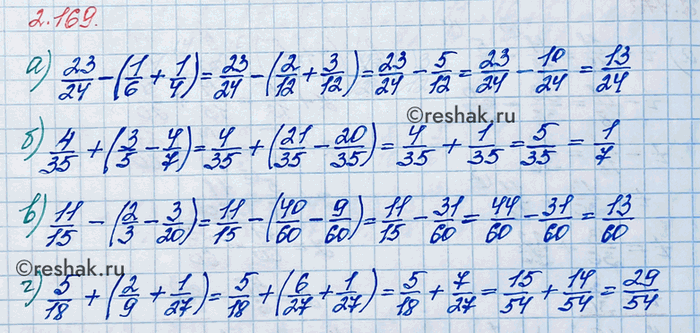 2.169.
а) 23/24 − (1/6 + 1/4) = 23/24 − (2/12 + 3/12) = 23/24 − 5/12 = 23/24 − 10/24 = 13/24
©reshak.ru
б) 4/35 + (3/5 − 4/7) = 4/35 + (21/35 − 20/35) = 4/35 + 1/35 = 5/35 = 1/7
в) 11/15 − (2/3 − 3/20) = 11/15 − (40/60 − 9/60) = 11/15 − 31/60 = 44/60 − 31/60 = 13/60
©reshak.ru
г) 5/18 + (2/9 + 1/27) = 5/18 + (6/27 + 1/27) = 5/18 + 7/27 = 15/54 + 14/54 = 29/54